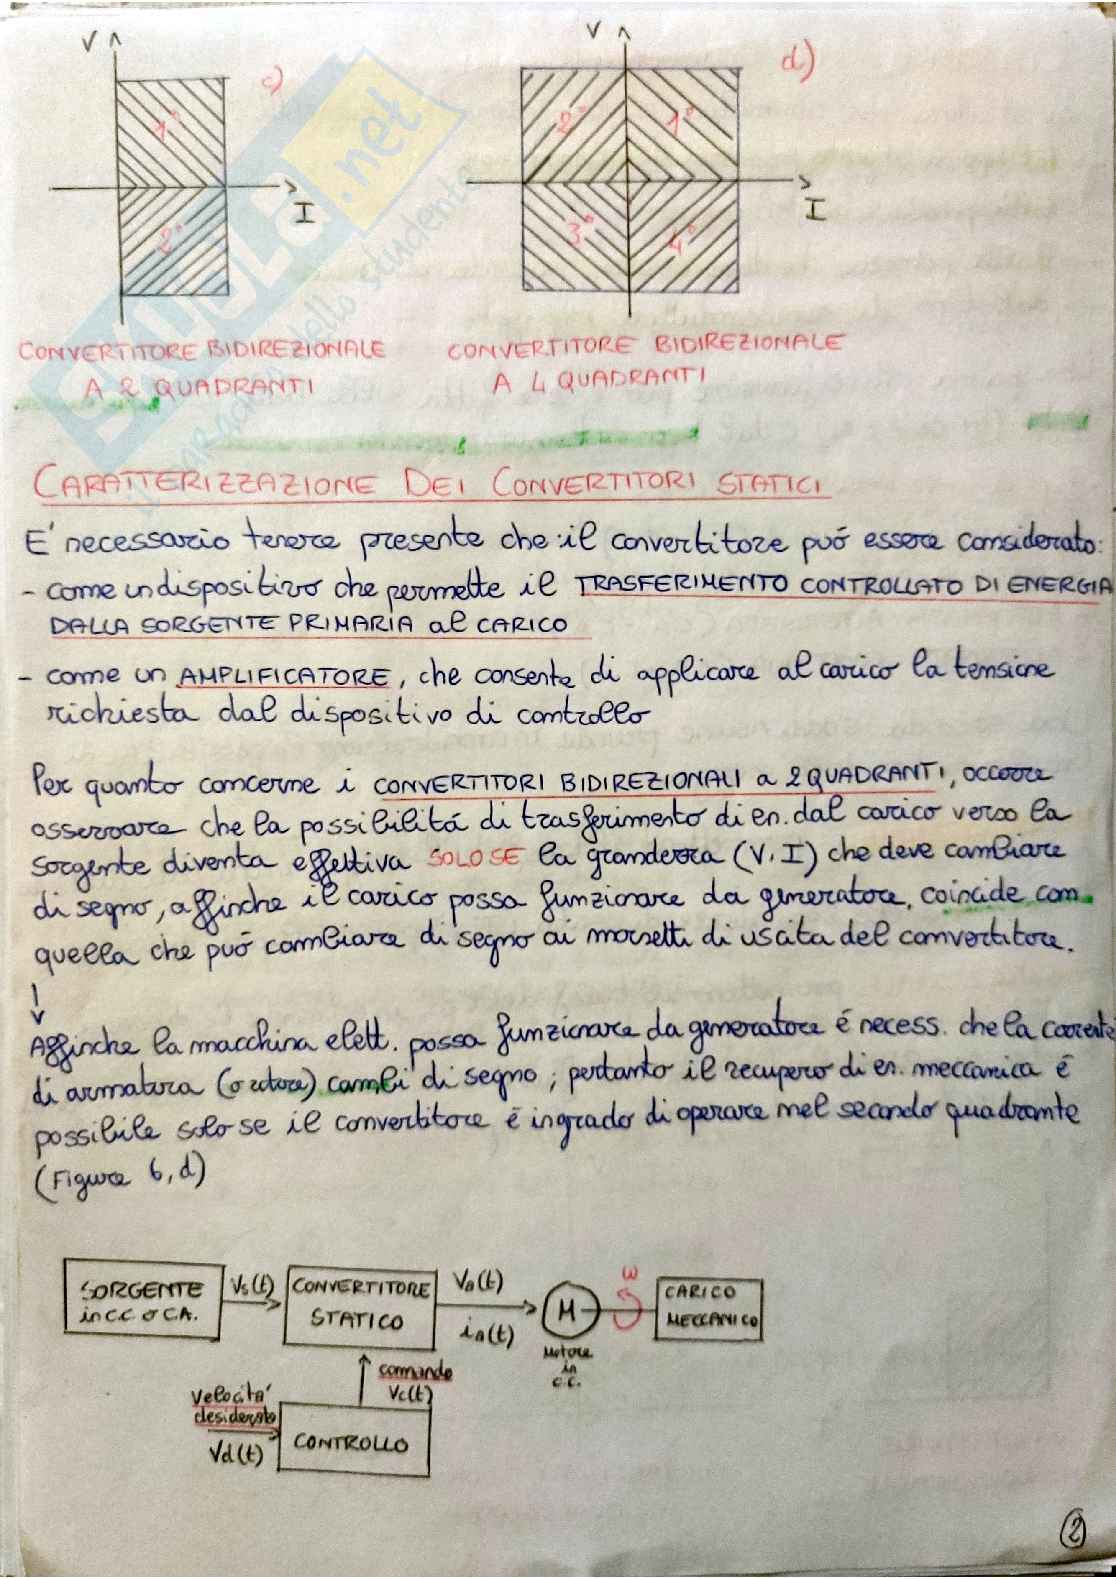 V
c)
1°
2°
I
V
d)
2°
1°
3°
4°
I
SKUOLA.net
CONVERTITORE BIDIREZIONALE
A 2 QUADRANTI
CONVERTITORE BIDIREZIONALE
A 4 QUADRANTI
CARATTERIZZAZIONE DEI CONVERTITORI STATICI
E' necessario tenere presente che: il convertitore può essere considerato:
- come un dispositivo che permette il TRASFERIMENTO CONTROLLATO DI ENERGIA
DALLA SORGENTE PRIMARIA al CARICO
- come un AMPLIFICATORE, che consente di applicare al carico la tensione
richiesta dal dispositivo di controllo
Per quanto concerne i CONVERTITORI BIDIREZIONALI a 2 QUADRANTI, occorre
osservare che la possibilitá di trasferimento di en. dal carico verso la
sorgente diventa effettiva SOLO SE la grandezza (V, I) che deve cambiare
di segno, affinche il carico possa funzionare da generatore, coincide con
quella che puó cambiare di segno ai morsetti di uscita del convertitore.
Affinche la macchina elett. possa funzionare da generatore é necess. che la corrente
di armatura (o rotore) cambi di segno; pertanto il recupero di en. meccanica é
possibile solo se il convertitore é in grado di operare nel secondo quadrante
(Figure b, d)
SORGENTE
in C.C. o C.A.
Vs(t)
CONVERTITORE
STATICO
Va(t)
ia(t)
M
Motore
in
C.C.
ω
CARICO
MECCANICO
comando
Vc(t)
Velocita'
desiderata
Vd(t)
CONTROLLO
2